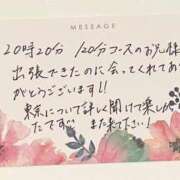 MESSAGE
20時20分 120分コースのお兄様
出張できたのに会ってくれてあり
がとうございます!!
東京について詳しく聞けて楽しか
ったです。また来て下さい!